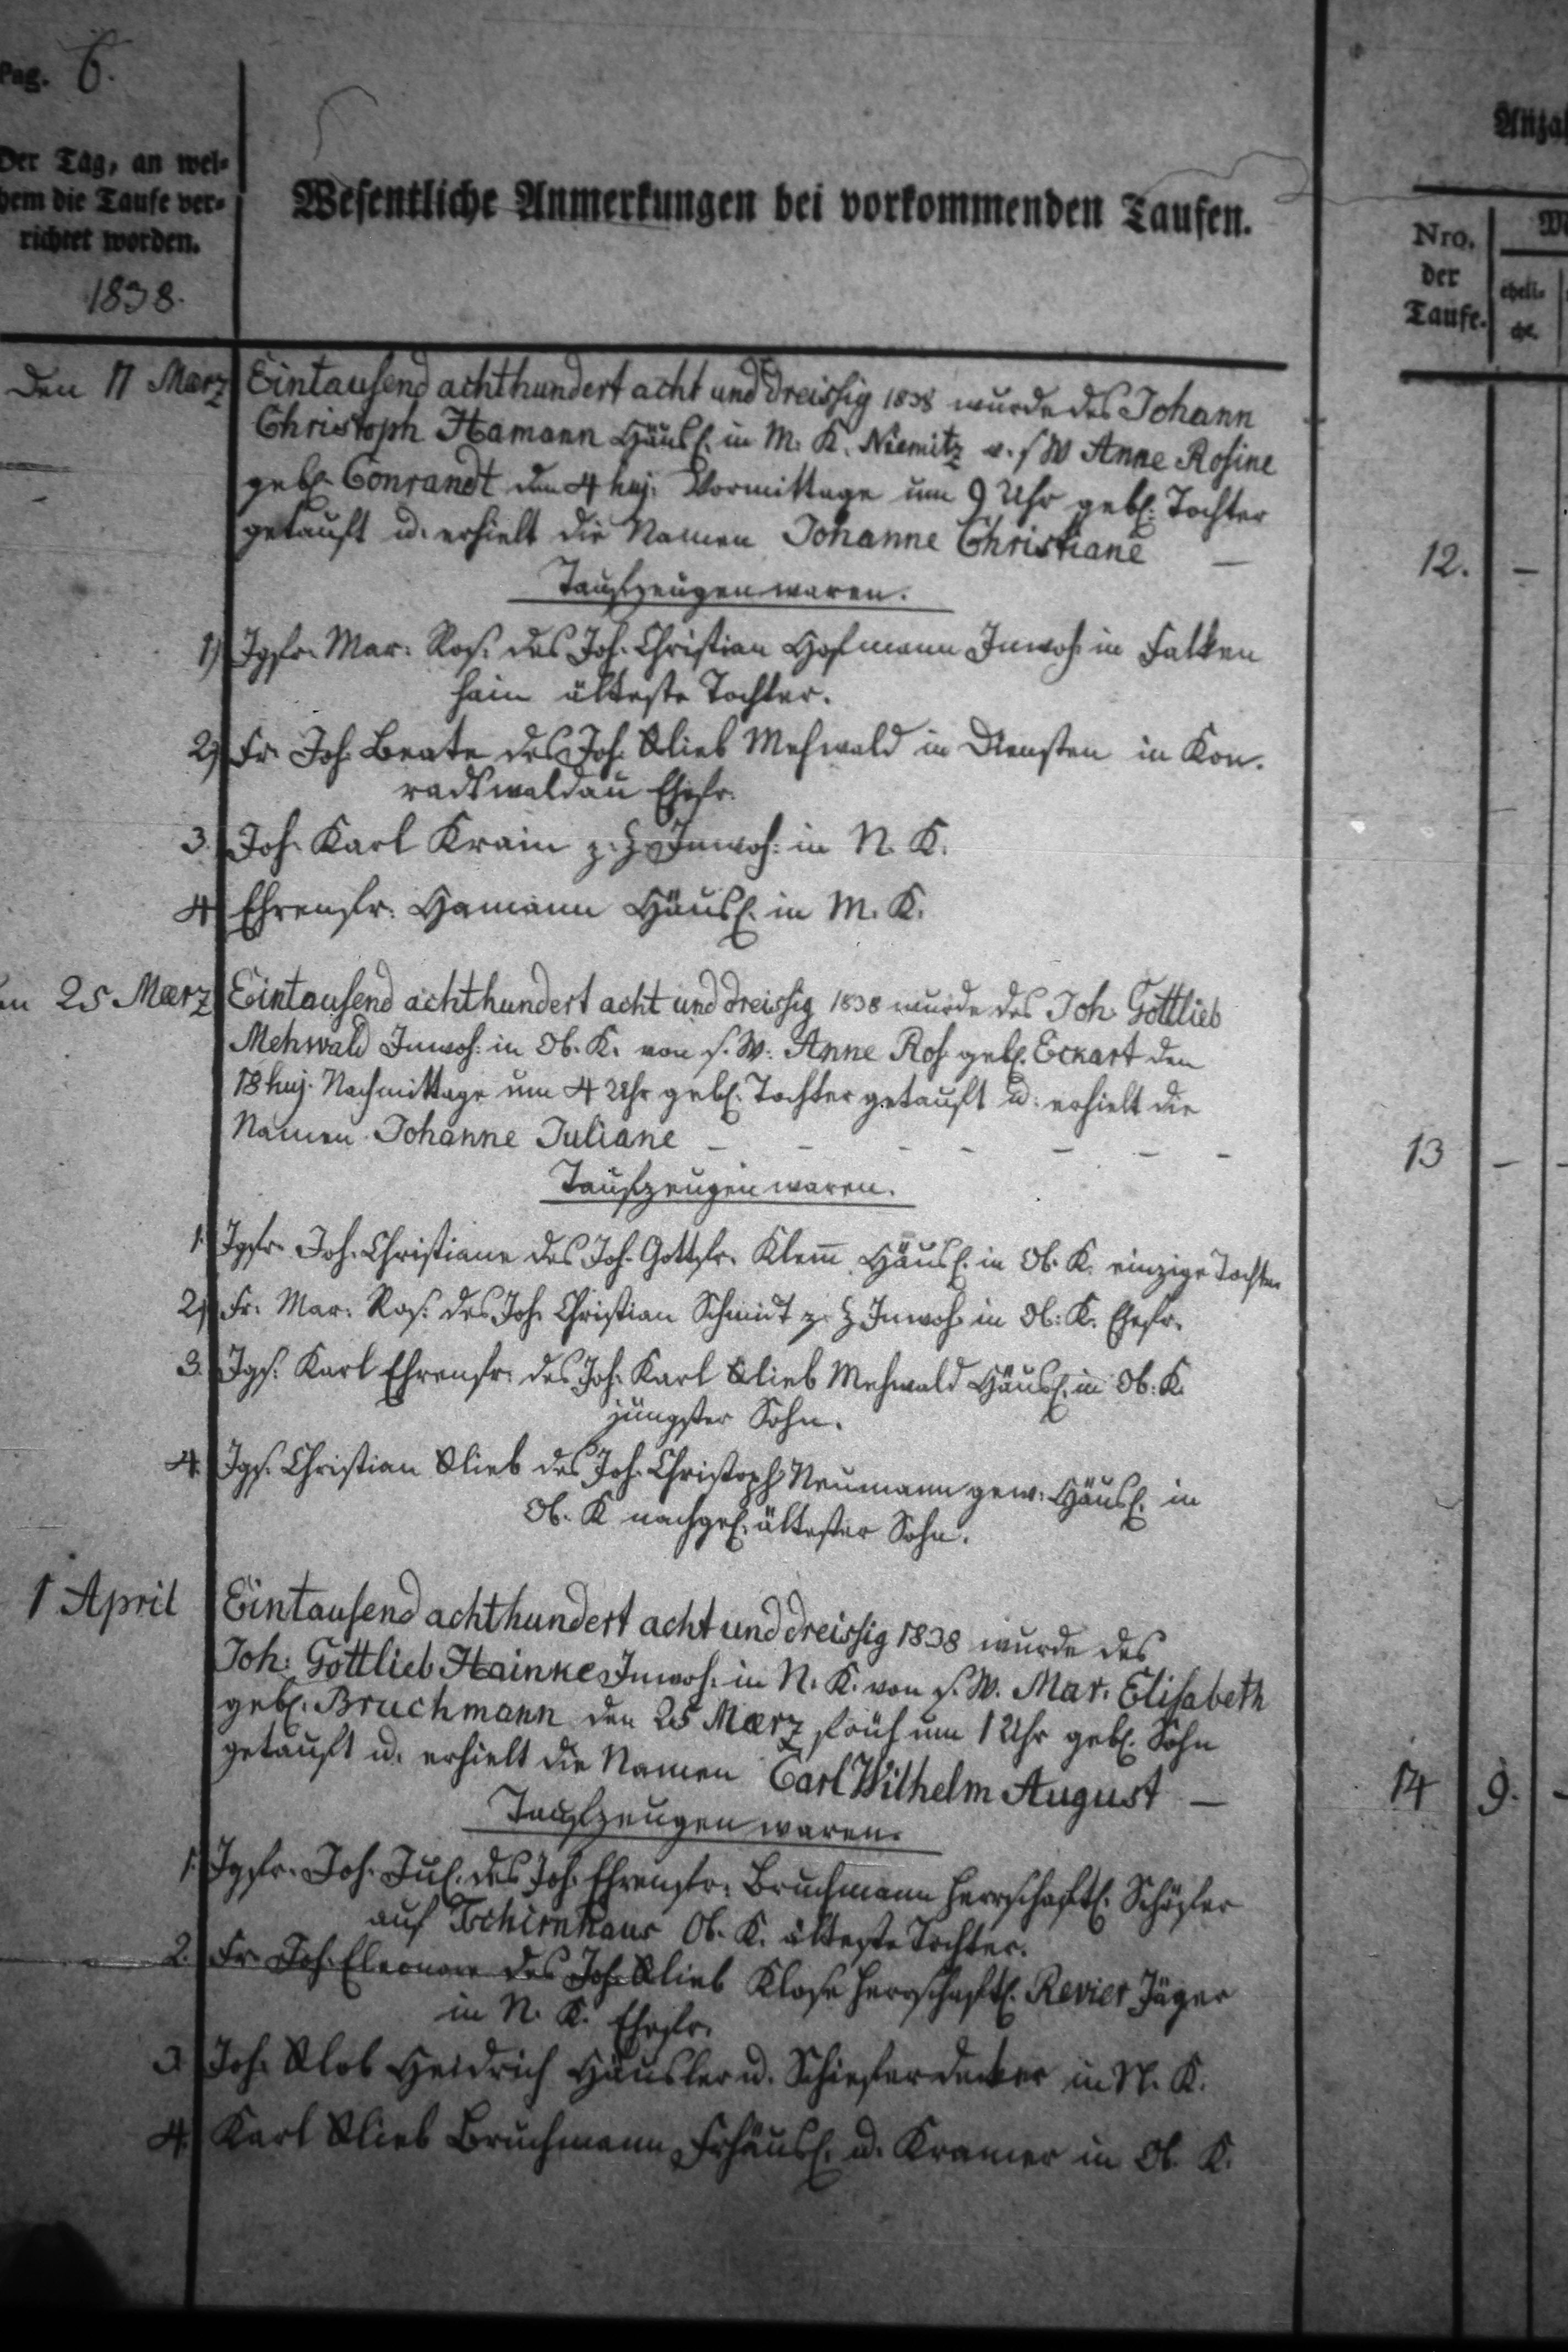 Pag. 6.
Der Tag, an wel-
chem die Taufe ver-
richtet worden.
1838.
Wesentliche Anmerkungen bei vorkommenden Taufen.
Anzah
Nro.
der
Taufe.
eheli-
che.
Den 11 Maerz
Eintausend achthundert acht und dreissig 1838 wurde des Johann
Christoph Hamann Häusl. in M. K. Niemitz v. s W Anne Rosine
gebl. Conrandt den 4 huj. Vormittage um 9 Uhr gebl. Tochter
getauft u. erhielt die Namen Johanne Christiane —
12. —
Taufzeugen waren.
1) Jgfr. Mar. Ros. des Joh. Christian Hofmann Inwoh. in Falken
hain älteste Tochter.
2) Fr. Joh. Beate des Joh. Glieb Mehwald in Diensten in Kon-
radtswaldau Ehefr.
3. Joh. Karl Krain z. Z. Inwoh. in N. K.
4 Ehrenfr. Hamann Häusl. in M. K.
en 25 Maerz
Eintausend achthundert acht und dreissig 1838 wurde des Joh. Gottlieb
Mehwald Inwoh. in Ob. K. von s. W. Anne Ros. gebl. Eckart den
18 huj. Nachmittage um 4 Uhr gebl. Tochter getauft u. erhielt die
Namen Johanne Juliane — — — — — — —
13 — —
Taufzeugen waren.
1. Jgfr. Joh. Christiane des Joh. Gottfr. Klem̅ Häusl. in Ob. K. einzige Tochter
2) Fr. Mar. Ros. des Joh. Christian Schmidt z. Z Inwoh. in Ob. K. Ehefr.
3. Jgs. Karl Ehrenfr. des Joh. Karl Glieb Mehwald Häusl. in Ob. K.
jüngster Sohn.
4. Jgs. Christian Glieb des Joh. Christoph Neumann gew. Häusl. in
Ob. K nachgel. ältester Sohn.
1 April
Eintausend achthundert acht und dreissig 1838 wurde des
Joh. Gottlieb Hainke Inwoh. in N. K. von s. W. Mar. Elisabeth
gebl. Bruchmann den 25 Maerz früh um 1 Uhr gebl. Sohn
getauft u. erhielt die Namen Carl Wilhelm August —
14 9. —
Taufzeugen waren.
1. Jgfr. Joh. Jul. des Joh. Ehrenfr. Bruchmann herrschaftl. Schäfer
auf Tschirnhaus Ob. K. älteste Tochter.
2. Fr. Joh. Eleonore des Joh. Glieb Klose herrschaftl. Revier Jäger
in N. K. Ehefr.
3 Joh. Glob Heidrich Häusler u. Schieferdecker in N. K.
4. Karl Glieb Bruchmann Frhäusl. u. Kramer in Ob. K.